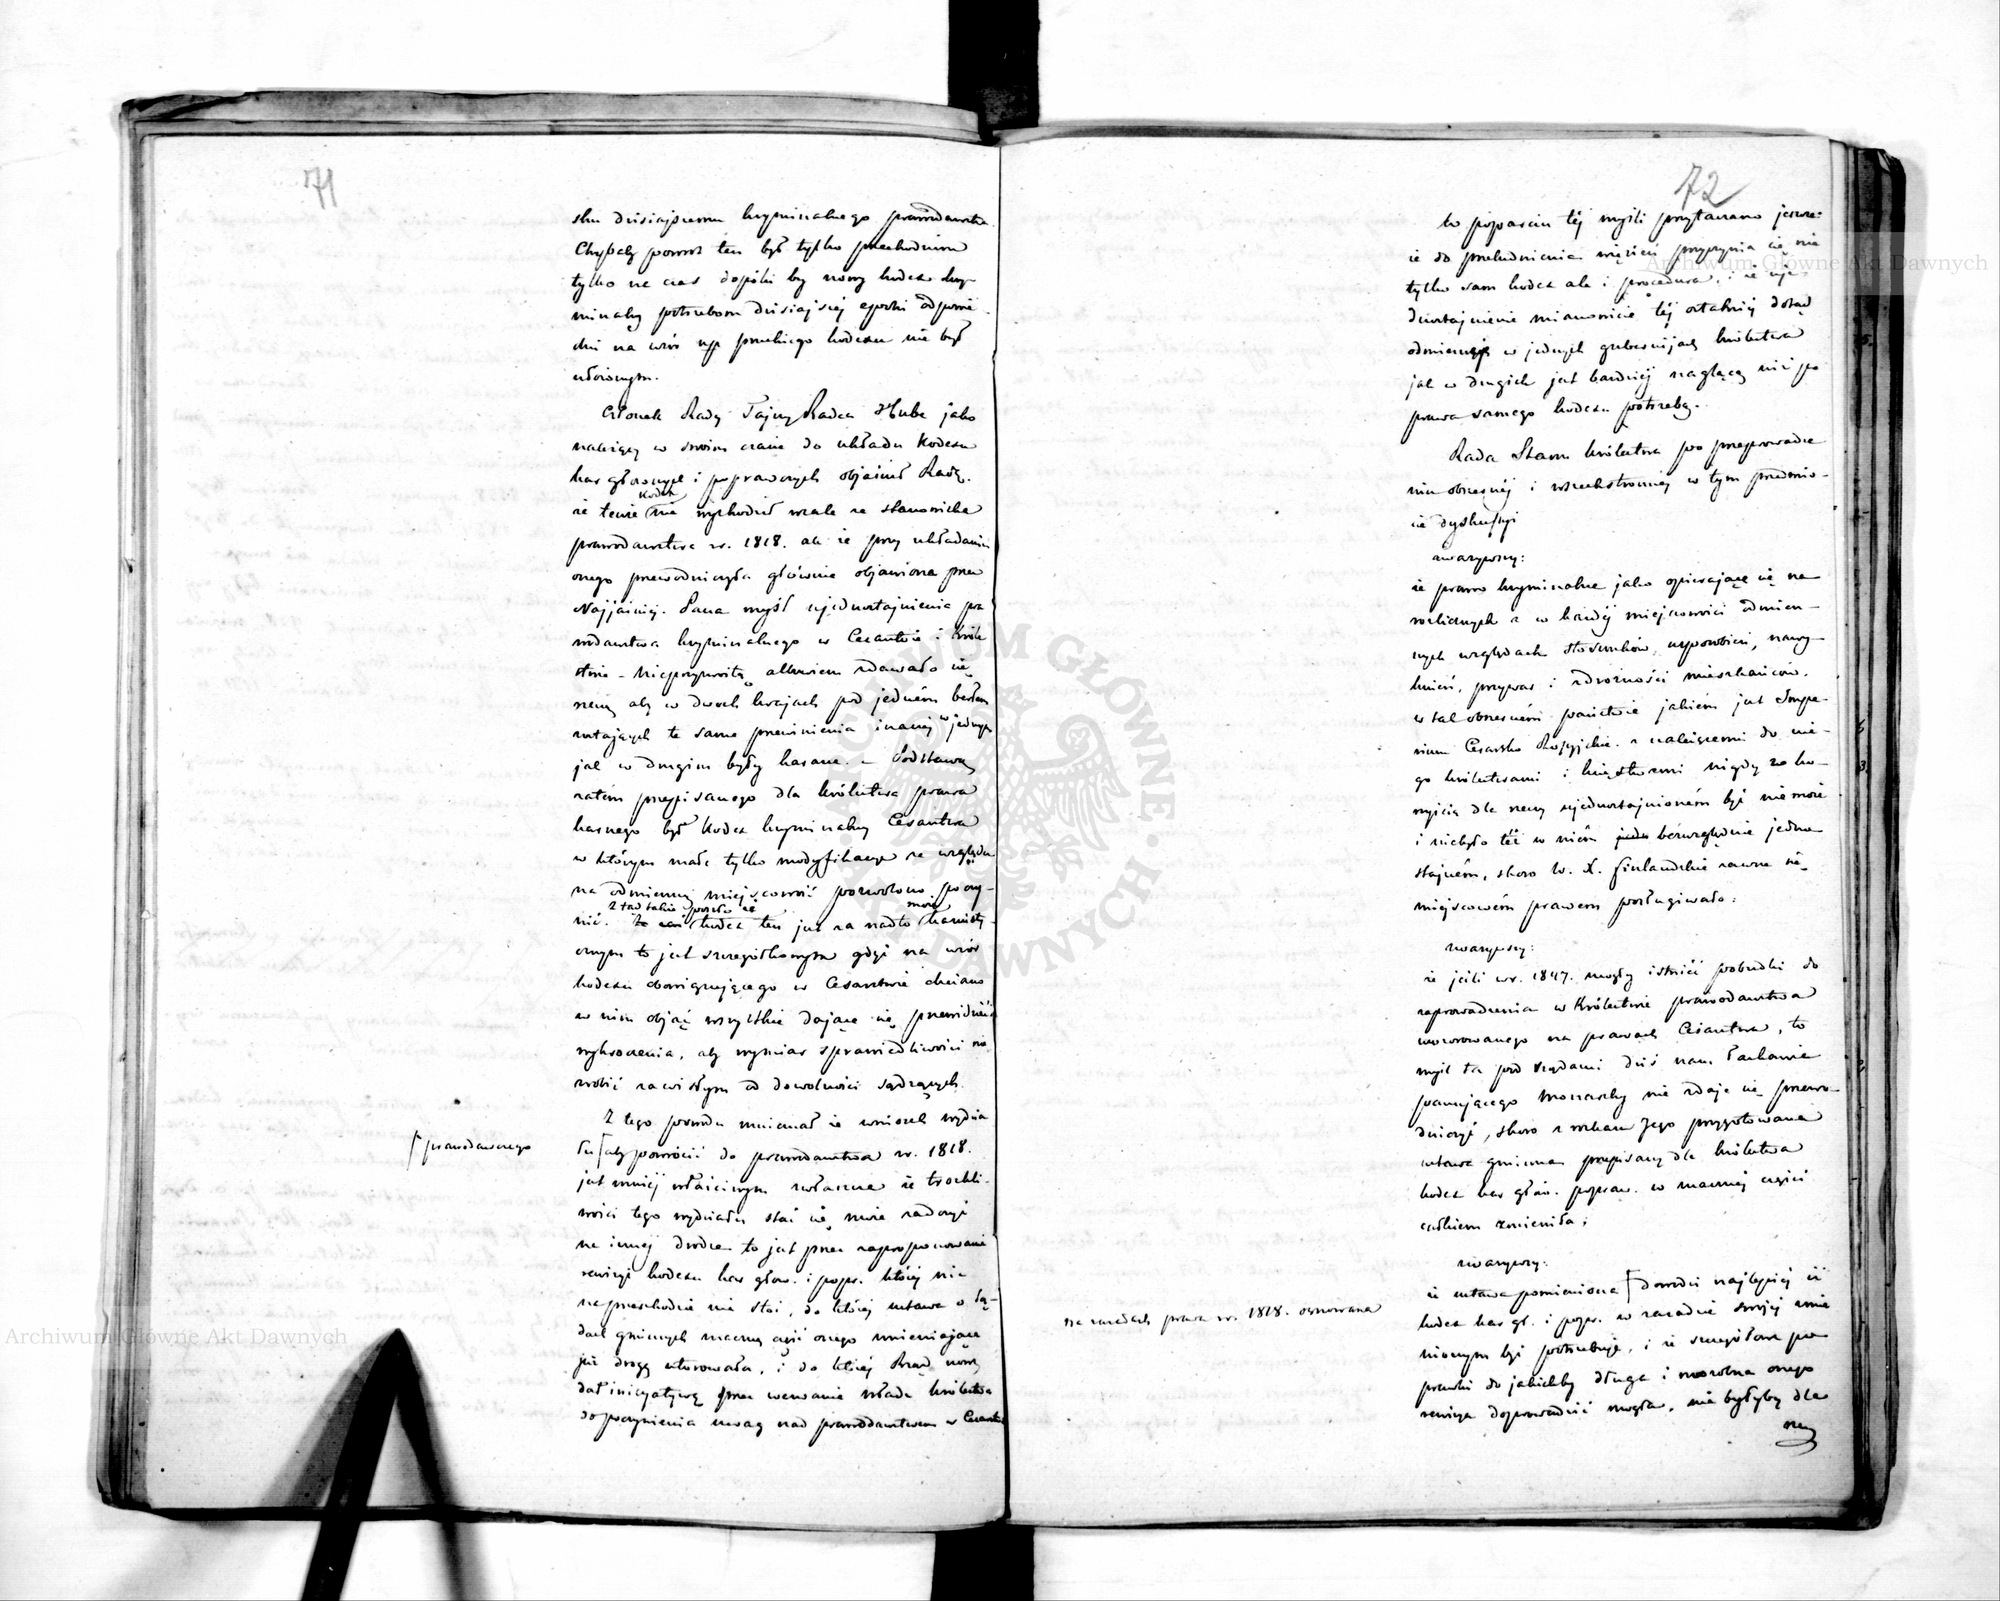 71
sku dzisiajszemu kryminalnego prawodawstwa
Chybaby powrot ten był tylko przechodnim
tylko na czas dopóki by nowy kodex kry-
minalny potrzebom dzisiajszej epoki odpowie-
dni na wzór np pruskiego kodexu nie był
ułożonym.
Członek Rady Tajny Radca Hube jako
należący w swoim czasie do układu Kodexu
kar głównych i poprawczych objaśnił Radę.
że tenże Kodex nie wychodził wcale ze stanowiska
prawodawstwa r. 1818. ale że przy układaniu
onego przewodniczyła głównie objawiona przez
Najjaśniej. Pana myśl ujednostajnienia pra
wodawstwa kryminalnego w Cesarstwie i Króle
stwie - Nieprzyzwoitą albowiem zdawało się
rzeczą aby w dwóch krajach pod jedném berłem
zostających te same przewinienia inaczej w jednym
jak w drugim były karane. - Podstawą
zatém przepisanego dla królestwa prawa
karnego był Kodex kryminalny Cesarstwa
w którym małe tylko modyfikacye ze względu
na odmienną miejscowość pozwolono poczy-
nić. Ztąd także poszło że kodex ten jest za nadto może kazuisty-
cznym to jest szczegółowym gdyż na wzór
kodexu obowiązującego w Cesarstwie chciano
w nim objąć wszystkie dające się przewidzieć
wykroczenia, aby wymiar sprawiedliwości nie
zrobić zawisłym od dowolności sądzących.
Z tego powodu mniemał że wniosek wydzia
łu prawodawczego aby powrócić do prawodawstwa r. 1818.
jest mniej właściwym zwłaszcza że troskli-
wości tego wydziału stać się może zadosyć
na innej drodze to jest przez zaproponowanie
rewizyi kodexu kar głow. i popr. której nic
na przeszkodzie nie stoi, do której ustawa o są-
dach gminnych znaczną część onego zmieniająca
już drogę utorowała, i do której Rząd nowy
dał inicyatywę przez wezwanie władz królestwa
do poczynienia uwag nad prawodawstwem w Cesarstw
72
Ku poparciu téj myśli przytaczano jeszcze:
że do przeludnienia więzień przyczynia się nie
tylko sam kodex ale i procedura, i że uje-
dnostajnienie mianowicie téj ostatniej dotąd
odmiennej w jednych gubernijach królestwa
jak w drugich jest bardziej naglącą niż po
prawa samego kodexu potrzebą.
Rada Stanu królestwa po przeprowadze
niu obszernéj i wszechstronnéj w tym przedmio-
cie dyskussyi
zważywszy:
że prawo kryminalne jako opierające się na
rozlicznych a w każdej miejscowości odmien-
nych względach stosunków, usposobień, nawy-
knień, przywar i zdrożności mieszkańców,
w tak obszerném państwie jakiem jest Impe-
rium Cesarsko Rossyjskie z należącemi do nie-
go królestwami i księstwami nigdy z ko-
rzyścią dla rzeczy ujednostajnioném być nie może
i niebyło też w niém bezwzględnie jedno-
stajném, skoro W. X. Finlandzkie zawsze się
miejscowém prawem posługiwało:
zważywszy:
że jeśli w r. 1847. mogły istnieć pobudki do
zaprowadzenia w Królestwie prawodawstwa
wzorowanego na prawach Cesarstwa, to
myśl ta pod rządami dziś nam łaskawie
panującego Monarchy nie zdaje się przewo-
dniczyć, skoro z rozkazu Jego przygotowana
ustawa gminna przepisany dla królestwa
kodex kar głów. popraw. w znacznej części
całkiem zmieniła;
zważywszy:
że ustawa pomieniona na zasadach prawa r. 1818. osnowana dowodzi najlepiej iż
kodex kar gł. i popr. w zasadzie swojej zmie
nionym być potrzebuje, i że szczegółowe po
prawki do jakichby długa i mozolna onego
rewizya doprowadzić mogła, nie byłyby dla
rze